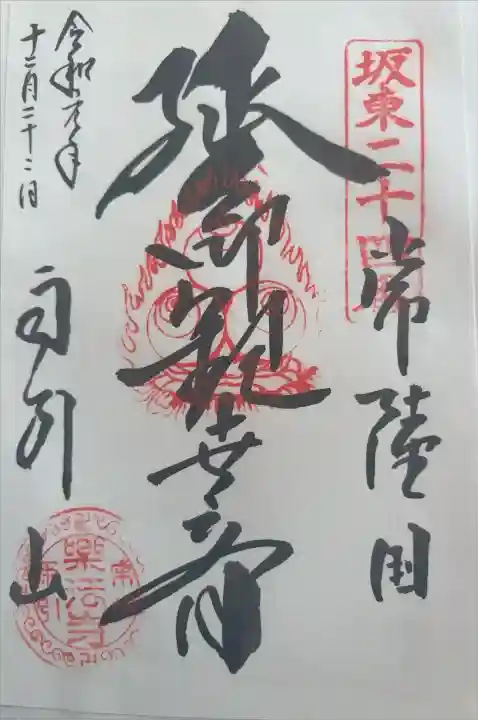 坂東二十四番
常陸国
延命観世音
雨引山
令和元年
十二月二十二日
樂法寺